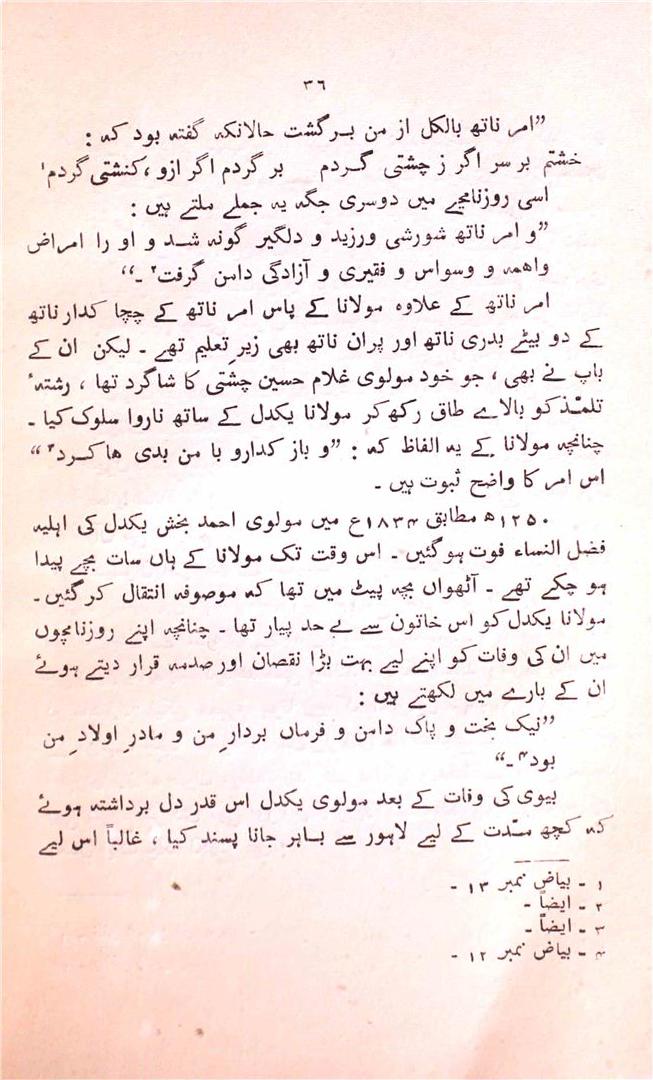 ۳۶
”امر ناتھ بالکل از من برگشت حالانکہ گفتہ بود کہ :
خشتم بر سر اگر ز چشتی گردم بر گردم اگر ازو ، کنشتی گردم۱
اسی روزنامچے میں دوسری جگہ یہ جملے ملتے ہیں :
”و امر ناتھ شورشی ورزید و دلگیر گونہ شد و او را امراض
واہمہ و وسواس و فقیری و آزادگی دامن گرفت۲ ۔“
امر ناتھ کے علاوہ مولانا کے پاس امر ناتھ کے چچا کدار ناتھ
کے دو بیٹے بدری ناتھ اور پران ناتھ بھی زیرِ تعلیم تھے ۔ لیکن ان کے
باپ نے بھی ، جو خود مولوی غلام حسین چشتی کا شاگرد تھا ، رشتہٴ
تلمّذ کو بالاے طاق رکھ کر مولانا یکدل کے ساتھ ناروا سلوک کیا ۔
چنانچہ مولانا کے یہ الفاظ کہ : ”و باز کدارو با من بدی ہا کرد۳“
اس امر کا واضح ثبوت ہیں ۔
۱۲۵۰ھ مطابق ۱۸۳۴ع میں مولوی احمد بخش یکدل کی اہلیہ
فضل النساء فوت ہو گئیں ۔ اس وقت تک مولانا کے ہاں سات بچے پیدا
ہو چکے تھے ۔ آٹھواں بچہ پیٹ میں تھا کہ موصوفہ انتقال کر گئیں ۔
مولانا یکدل کو اس خاتون سے بے حد پیار تھا ۔ چنانچہ اپنے روزنامچوں
میں ان کی وفات کو اپنے لیے بہت بڑا نقصان اور صدمہ قرار دیتے ہوئے
ان کے بارے میں لکھتے ہیں :
”نیک بخت و پاک دامن و فرماں بردارِ من و مادرِ اولادِ من
بود۴ ۔“
بیوی کی وفات کے بعد مولوی یکدل اس قدر دل برداشتہ ہوئے
کہ کچھ مدّت کے لیے لاہور سے باہر جانا پسند کیا ، غالباً اس لیے
۱ ۔ بیاض نمبر ۱۳ ۔
۲ ۔ ایضاً ۔
۳ ۔ ایضاً ۔
۴ ۔ بیاض نمبر ۱۲ ۔